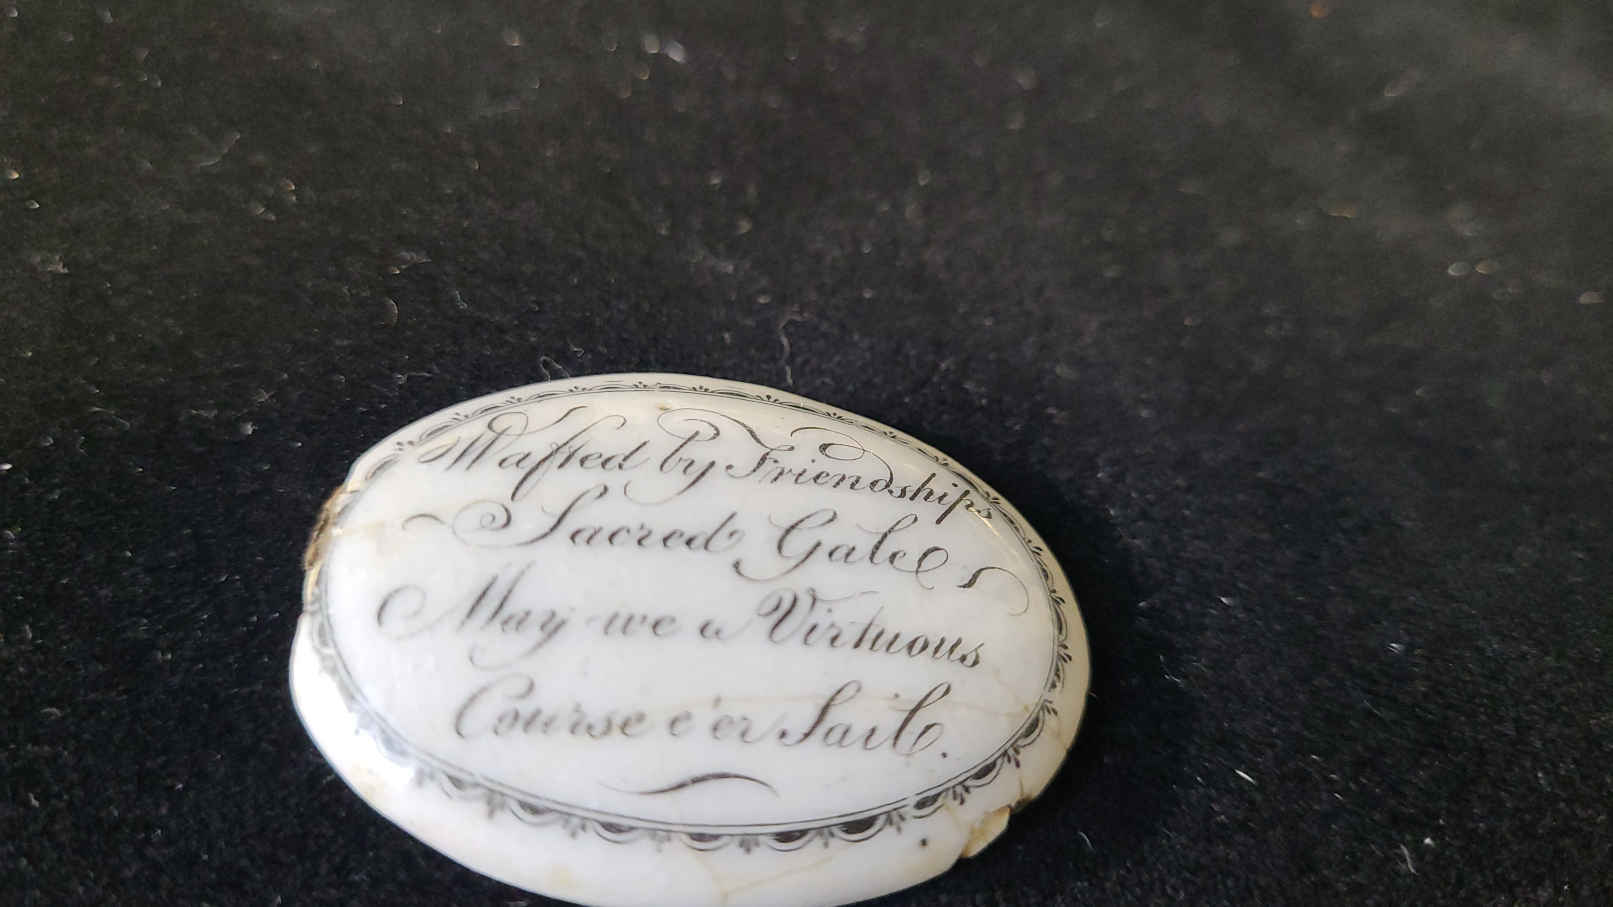 Wafted by Friendships
Sacred Gale
May we a Virtuous
Course e'er Sail.